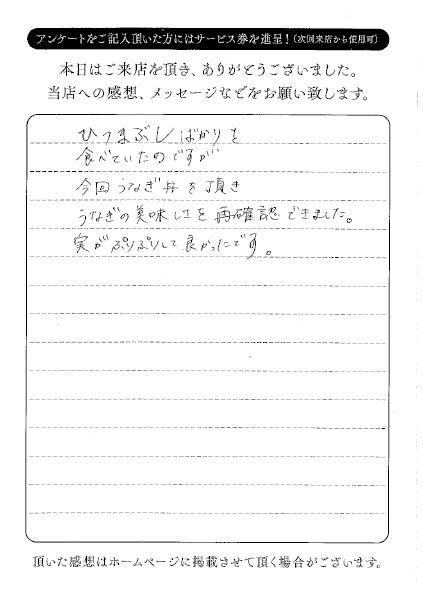 アンケートをご記入頂いた方にはサービス券を進呈！（次回来店から使用可）
本日はご来店を頂き、ありがとうございました。
当店への感想、メッセージなどをお願い致します。
ひつまぶしばかりを
食べていたのですが
今回うなぎ丼を頂き
うなぎの美味しさを再確認できました。
実がぷりぷりして良かったです。
頂いた感想はホームページに掲載させて頂く場合がございます。